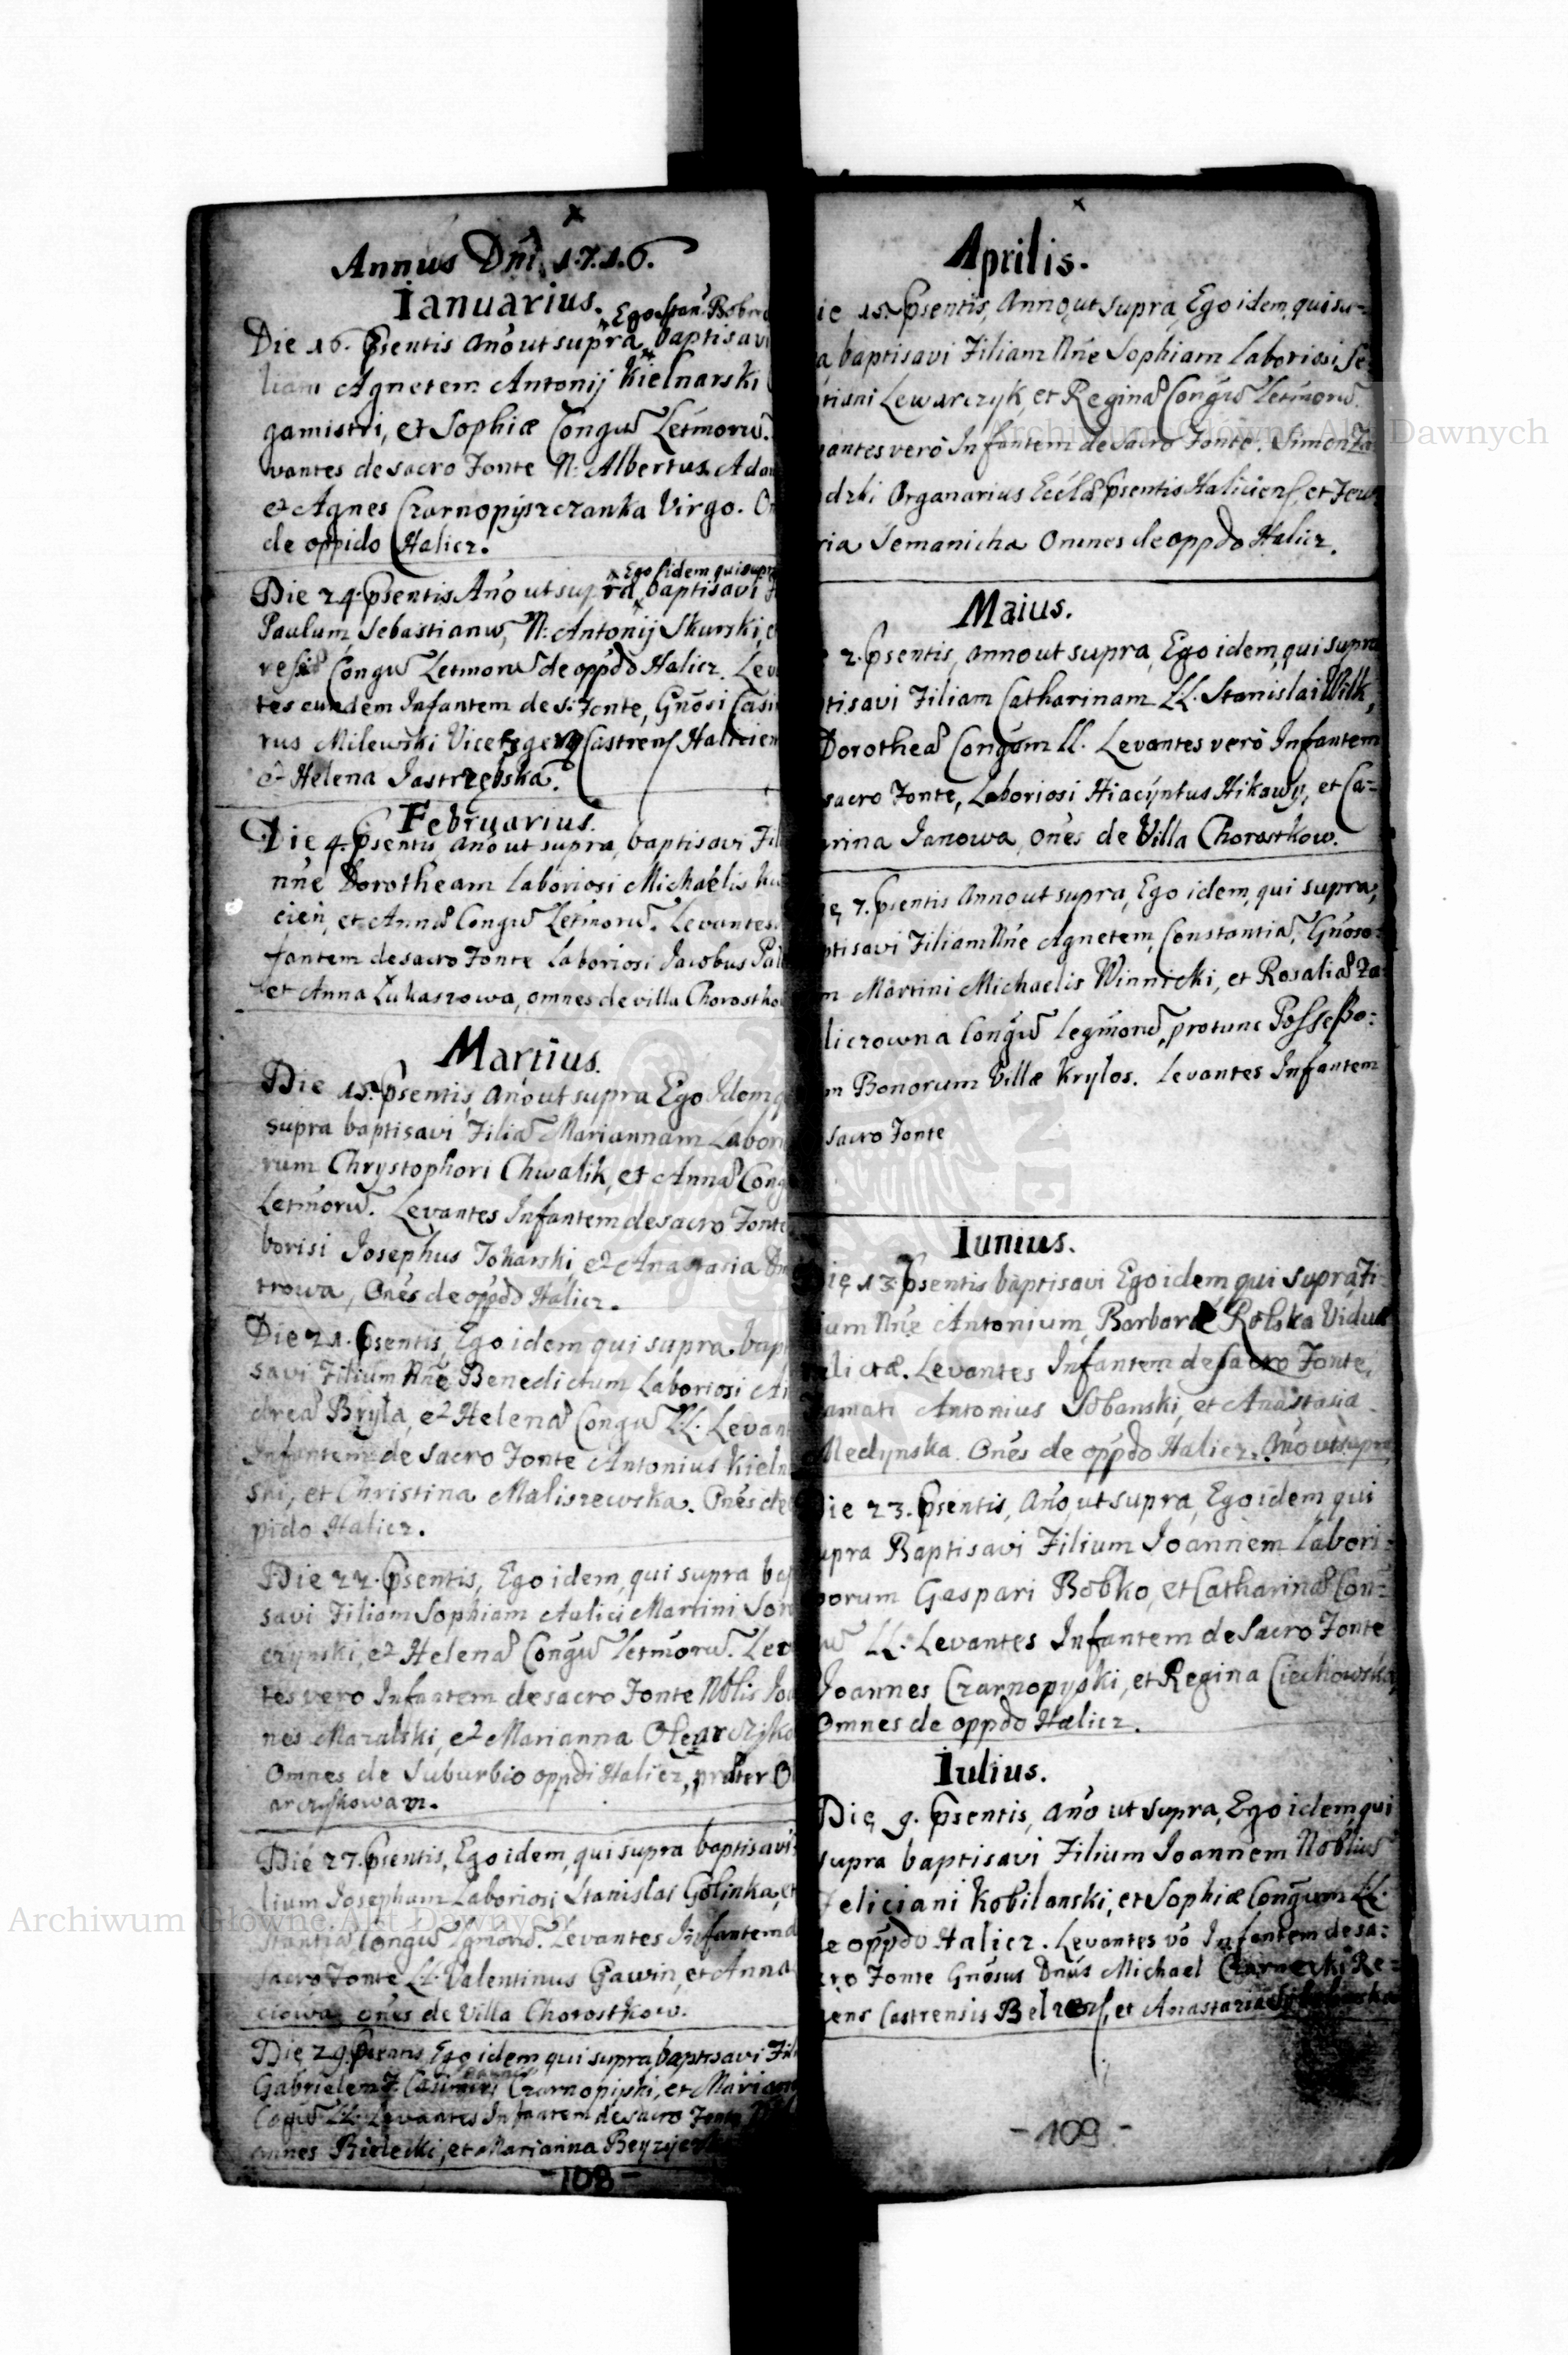 Annus Dni 1.7.1.6.
Ianuarius.
Ego Stan: Bobr
Die 16. Psentis Ano ut supra, baptisavi
liam Agnetem Antonij Kielnarski
gamistri, et Sophiæ Congu Letmoru.
vantes de sacro Fonte N: Albertus Ada
et Agnes Czarnopijszczanka Virgo. O
de oppido Halicz.
Ego idem qui supra
Die 24. Psentis Ano ut supra, baptisavi
Paulum, Sebastianu, N: Antonij Skurski,
Congu Letmoru de oppdo Halicz. Lev
tes eundem Infantem de s: Fonte, Gnosi Casi
rus Milewski Vicesgerens Castrens Halicien
et Helena Jastrzębska.
Februarius.
Die 4. Psentis Ano ut supra, baptisavi Fil
nne Dorotheam Laboriosi Michaelis
cien, et Annæ Congu Letmoru. Levantes
fantem de sacro Fonte Laboriosi Jacobus Pa
et Anna Łukaszowa, omnes de villa Chorostko
Martius.
Die 15. Psentis, Ano ut supra Ego Idem q
supra baptisavi Filia Mariannam Labori
rum Chrystophori Chwalik, et Annæ Cong
Letmoru. Levantes Infantem de sacro Fonte
borisi Josephus Tokarski, et Anastasia Dm
trowa, Ones de oppdo Halicz.
Die 21. Psentis, Ego idem qui supra bapt
savi Filium Nne Benedictum Laboriosi An
dreæ Bryła, et Helenæ Congu LL. Levant
Infantem de Sacro Fonte Antonius Kieln
ski, et Christina Maliszewska. Ones de
pido Halicz.
Die 22. Psentis, Ego idem, qui supra bap
savi Filiam Sophiam Aulici Martini Son
czynski, et Helenæ Congu Letmoru. Lev
tes vero Infantem de sacro Fonte Nblis Joa
nes Mazalski, et Marianna Olearczyko
Omnes de Suburbio oppdi Halicz, præter Ol
arczykowam.
Die 27. Psentis, Ego idem, qui supra baptisavi
lium Josephum Laboriosi Stanislai Golinka, et
stantiæ Congu Lgmoru. Levantes Infantem d
sacro Fonte LL. Valentinus Gawin, et Anna
ciowa, ones de Villa Chorostkow.
Die 29. Psentis, Ego idem qui supra, baptisavi Fili
Gabrielem Casimiri Czarnopijski, et Mariann
Cogu LL. Levantes Infantem de sacro Fonte
annes Bielecki, et Marianna
-108-
Aprilis.
ie 15. Psentis, Anno, ut supra, Ego idem, qui su-
a baptisavi Filiam Nne Sophiam Laboriosi, Se-
tiani Lewarczyk, et Reginæ Congu Letmoru.
vantes vero Infantem de sacro Fonte. Simon Za
dzki Organarius Eclæ Psentis Haliciens, et Jew
ria Semanicha Omnes de oppdo Halicz.
Maius.
e 2. Psentis, anno ut supra, Ego idem, qui supra
tisavi Filiam Catharinam LL. Stanislai Wilk,
Dorotheæ Congum LL. Levantes vero Infantem
sacro Fonte, Laboriosi Hiacyntus Hikawy, et Ca-
arina Janowa, ones de Villa Chorostkow.
ie 7. Psentis Anno ut supra, Ego idem, qui supra,
ptisavi Filiam Nne Agnetem, Constantia, Gnoso-
m Martini Michaelis Winnicki, et Rosaliæ Za-
liczowna Congu Legmoru, protunc Possesso-
m Bonorum Villæ Krylos. Levantes Infantem
sacro Fonte
Iunius.
ie 13. Psentis baptisavi Ego idem, qui supra, Fi-
ium Nne Antonium, Barbaræ Rolska Viduæ
elictæ. Levantes Infantem de sacro Fonte,
amati Antonius Sobanski, et Anastasia
Medynska. Ones de oppdo Halicz. Ano ut supra
Die 23. Psentis, Ano ut supra, Ego idem, qui
upra Baptisavi Filium Joannem Labori-
orum Gaspari Bobko, et Catharinæ Con-
u LL. Levantes Infantem de Sacro Fonte
Joannes Czarnopyski, et Regina Ciechowska,
Omnes de oppdo Halicz.
Iulius.
Die 9. Psentis, Ano ut supra, Ego idem, qui
supra baptisavi Filium Joannem Noblius
Feliciani Kobilanski, et Sophiæ Congum LL.
de oppdo Halicz. Levantes vo Infantem de sa-
cro Fonte Gnosus Dnus Michael Czarnecki Re-
gens Castrensis Belzens, et Anastasia
-109-
Archiwum Główne Akt Dawnych
Archiwum Główne Akt Dawnych